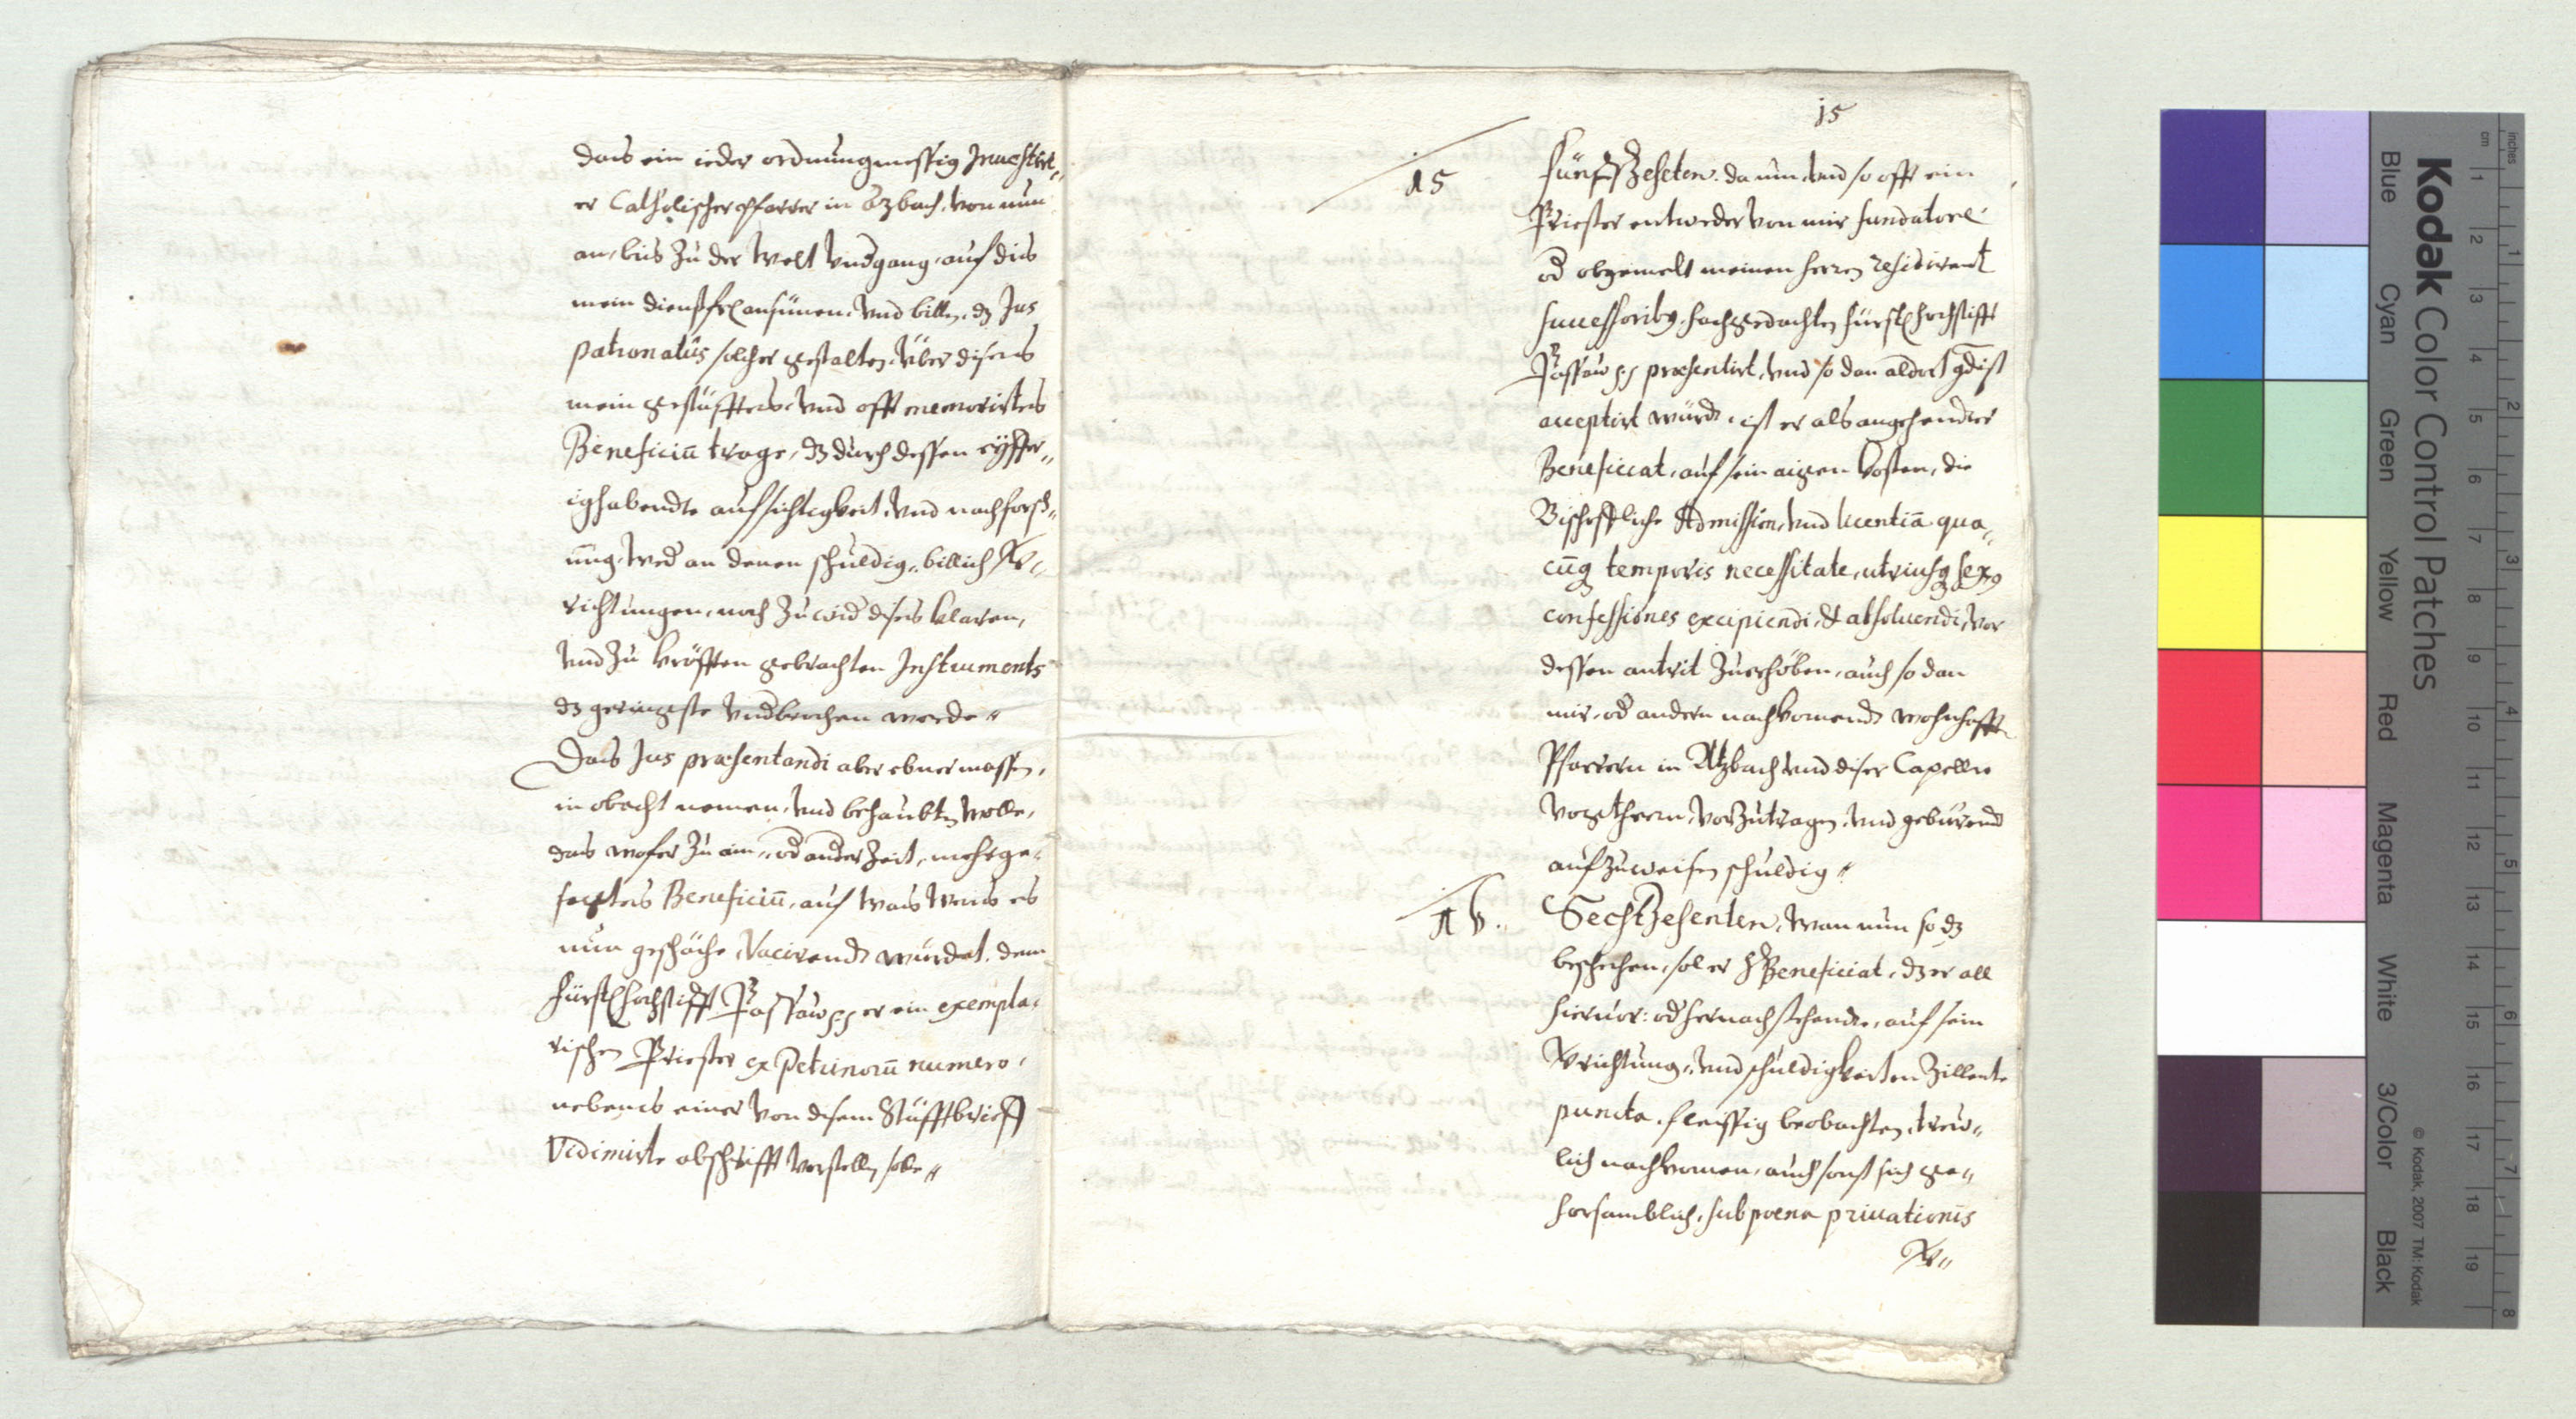 das ein ieder ordnungmessig Inuestirt-
er Catholischer Pfarrer in Azbach, von nun
an, bis Zu der Welt Vndgang, auf dis
mein dienstfrl ansünen, Vnd billn, dz Jus
patronatûs solcher gestalten, Über dises
mein gestüfftes, Vnd offt memorirtes
Beneficiū trage, dz durch dessen eÿffer„
ig habendte aufsichtigkeit, Vnd nachforsch„
ung, Wed an denen schuldig„ billich Ver„
richtungen, noch Zuwid dises klaren,
Vnd Zu kröfften gebrachten Instruments
dz geringste Vndbrochen werde„
Das Jus præsentandi aber ebner massen,
in obacht nemen, Vnd behaubtn wolle,
das wofer Zu ain„ od ander Zeit, mehrge„
sagtes Beneficiū, auf was Weis es
nun geschäche, Vacirend würdet, dem
fürstl hochstifft Passaw er ein exempla„
rischen Priester ex Petrinorū numero,
nebens einer Von disem Stüfftbrieff
Vidimirte abschrifft Vorstelln solle„
15
15
Fünfzeheten. da nun, Vnd so offt ein
Priester entweder Von mir fundatore
od obgemelt meinen herren residirent
successoribus, hochgedachten fürstl hochstifft
Passaw præsentirt, Vnd so dan aldort gdist
acceptirt würdt, ist er als angehender
Beneficiat, auf sein aigen kosten, die
Bischoffliche Admission, Vnd licentiā qua„
cūq temporis necessitate, utriusq sexus
confessiones excipiendi, & absoluendi, vor
dessen antrit Zuerhöben, auch so dan
mir, od andern nachkomend wohnhafften
Pfarrern in Atzbach Vnd diser Capelln
Vogtherrn, Vorzutragen, Vnd gebürend
aufzuweisen schuldig„
16.
Sechzehenten, Wan nun so dz
beschehen, sol er H Beneficiat, dz er all
hieruor: od hernach stehende, auf sein
Verrichtung„ Vnd schuldigkeiten Zillente
puncta, fleissig beobachten, treu„
lich nachkomen, auch sonst sich ge„
horsamblich, sub poena priuationis
Ver„